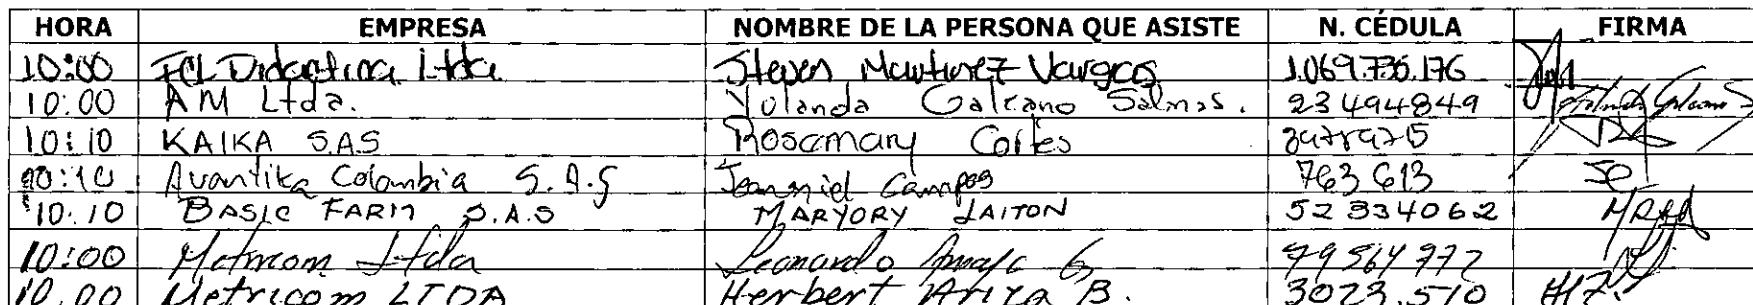 HORA EMPRESA NOMBRE DE LA PERSONA QUE ASISTE N. CÉDULA FIRMA
10:00 FCL Didactica Ltda Steven Martinez Vargas 1.069.736.176
10:00 AM Ltda. Yolanda Galeano Salinas. 23 494849
10:10 KAIKA S.A.S Rosemary Cortes
10:10 Avantika Colombia S.A.S Campos 763 613
10:10 BASIC FARM S.A.S MARYORY LAITON 52 334062
10:00 Metricom Ltda Leonardo Amaya G, 79564772
10.00 Metricom LTDA Herbert Ariza B. 3023.510 HZ.